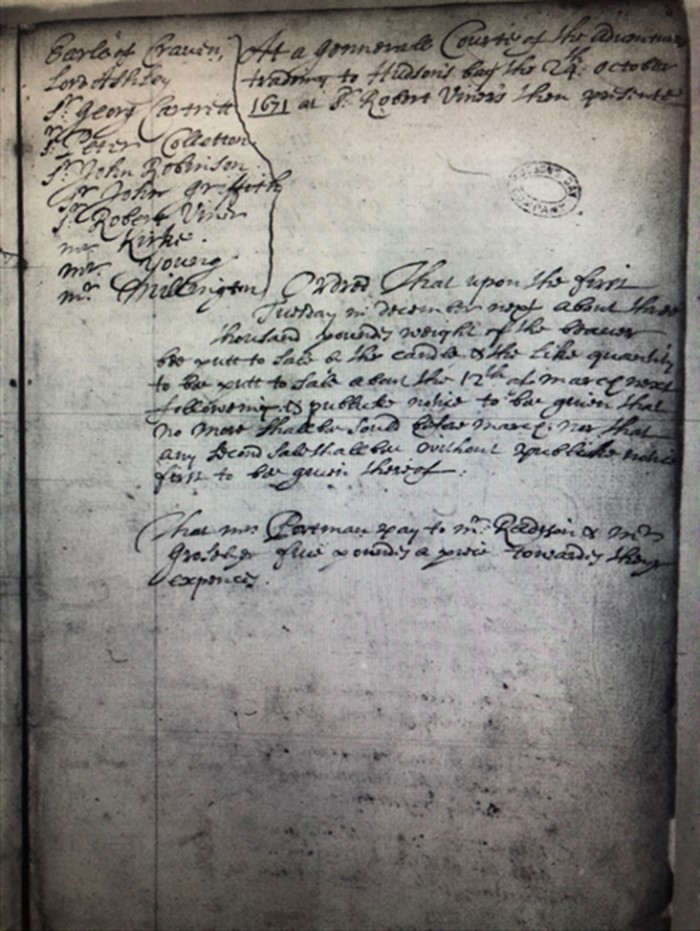 Earle of Craven,
Lord Ashley
Sr. Georg Cartrett
Sr. Peter Colleton
Sr. John Robinson
Sr. John Griffith
Sr. Robert Viner
mr. Kirke.
mr. Young
mr. Millington
At a Gennerall Courte of the adventurers
trading to Hudsons bay the 24th. october
1671 at Sr. Robert Viners then presente
HUDSON'S BAY COMPANY
Ordred That upon the first
Tuesday in december next about three
thousand pounds weight of the beaver
bee putt to sale by the candle, & the like quantity
to bee putt to sale about the 12th of march next
following & publicke notice to bee given that
no more shall bee sould before march nor that
any second sale shall bee without publicke notice
first to bee given thereof:
That mr Portman pay to mr. Radisson & mr
five pounds a peice towards their
expences.